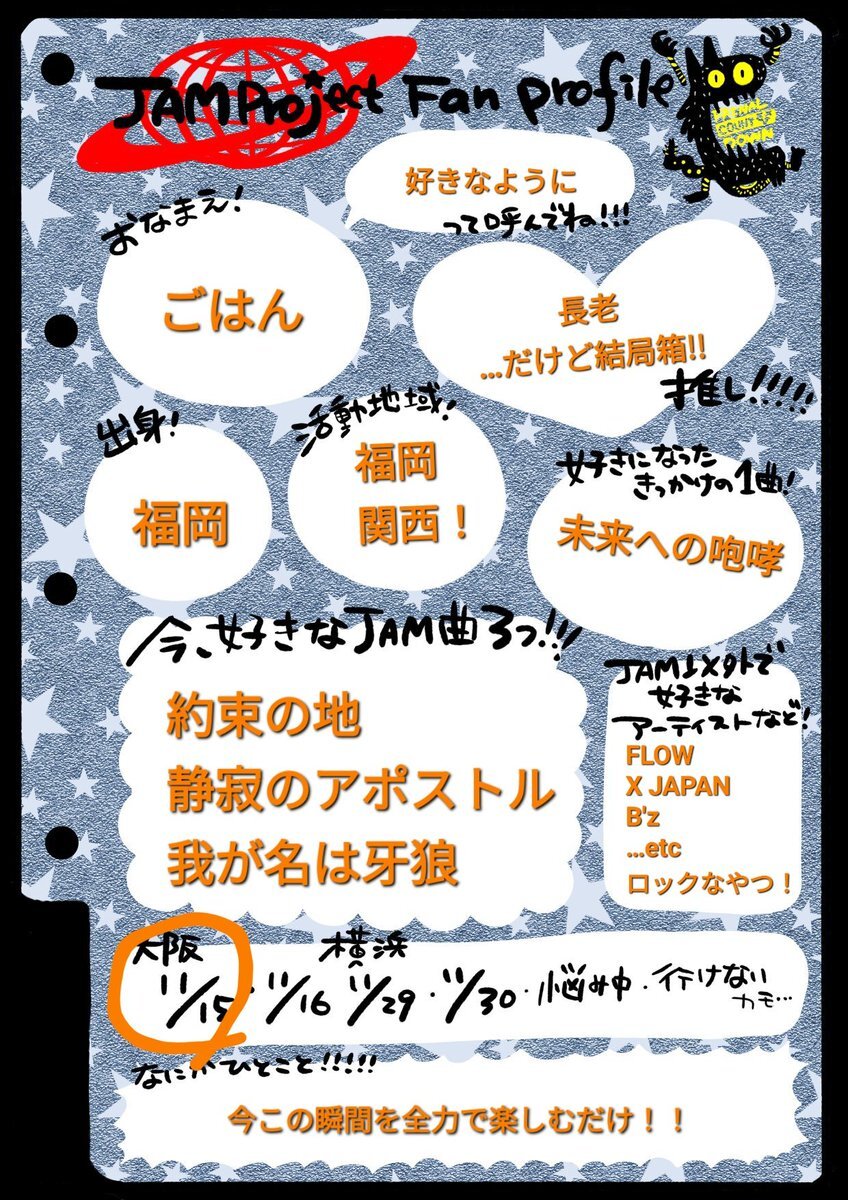 JAM Project Fan profile
FINAL
COUNTER
DOWN
好きなように
って呼んでね!!!
おなまえ!
ごはん
長老
...だけど結局箱!!
推し!!!!!
出身!
福岡
活動地域!
福岡
関西！
好きになった
きっかけの1曲!
未来への咆哮
今、好きなJAM曲3つ!!!
約束の地
静寂のアポストル
我が名は牙狼
JAM以外で
好きな
アーティストなど!
FLOW
X JAPAN
B'z
...etc
ロックなやつ！
大阪 横浜
11/15・11/16 11/29・11/30・悩み中・行けない
カモ…
なにかひとこと!!!!!
今この瞬間を全力で楽しむだけ！！